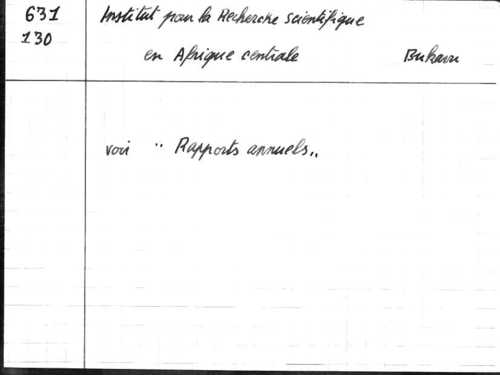 631 Institut pour la Recherche scientifique
130 en Afrique centrale Bukavu
voir " Rapports annuels"